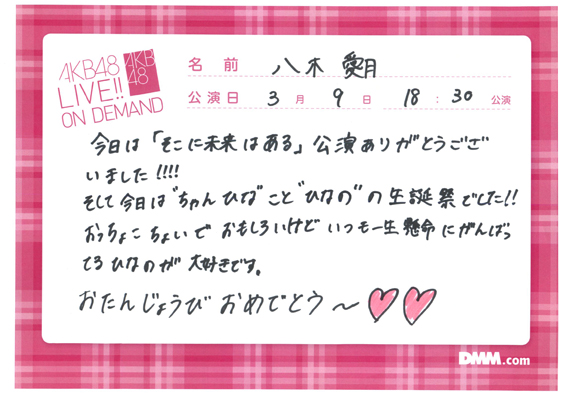 AKB48
LIVE!!
ON DEMAND
AKB
48
名 前 八木 愛月
公演日 3 月 9 日 18 : 30 公演
今日は「そこに未来はある」公演ありがとうござ
いました!!!!
そして今日は"ちゃんひな"こと"ひなの"の生誕祭でした!!
おっちょこちょいでおもしろいけどいつも一生懸命にがんばっ
てるひなのが大好きです。
おたんじょうびおめでとう〜
DMM.com